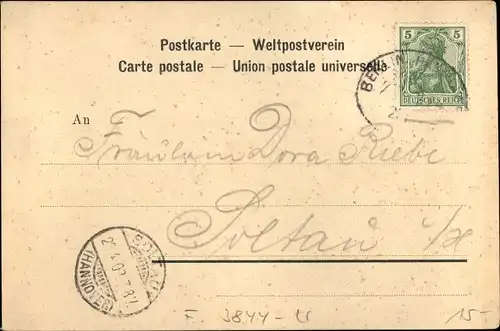 Postkarte — Weltpostverein
Carte postale — Union postale universelle
5 5
DEUTSCHES REICH
BERLIN
An
Fräulein Dora Riebe
Soltau i/H
SOLTAU
(HANNOVER)
F. 3844-u
15-